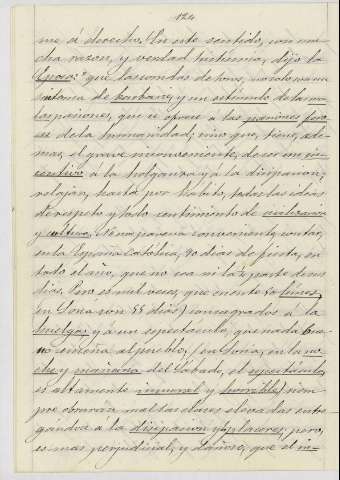 124
me á derecho. En este sentido, con mu-
cha razon, y verdad tristísima, dijo la
Epoca: "que las corridas de toros, no solo son un
síntoma de barbarie, y un estímulo de las ma-
las pasiones, que se ofrece a las pasiones fero-
ces de la humanidad; sino que, tiene, ade-
mas, el grave inconveniente, de ser un in-
centivo á la holganza y á la disipacion;
relajar, hasta por hábito, todas las ideas
de respeto y todo sentimiento de civilizacion
y cultura. Nos parecerá conveniente, contar,
en la España Católica, 90 dias de fiesta, en
todo el año, que no es a ni la 4ª parte de sus
dias. Pero es mil veces, que cuente 52 lúnes,
en Soria son 55 dias) consagrados á la
huelga, y á un espectáculo, que nada bue-
no enseña al pueblo; (en Soria, en la no-
che y mañana del Sábado, el espectáculo
es altamente inmoral y horrible) siem-
pre obrarán mal las clases elevadas entre-
gandose á la disipacion y placeres; pero,
es mas perjudicial, y dañoso, que el in-